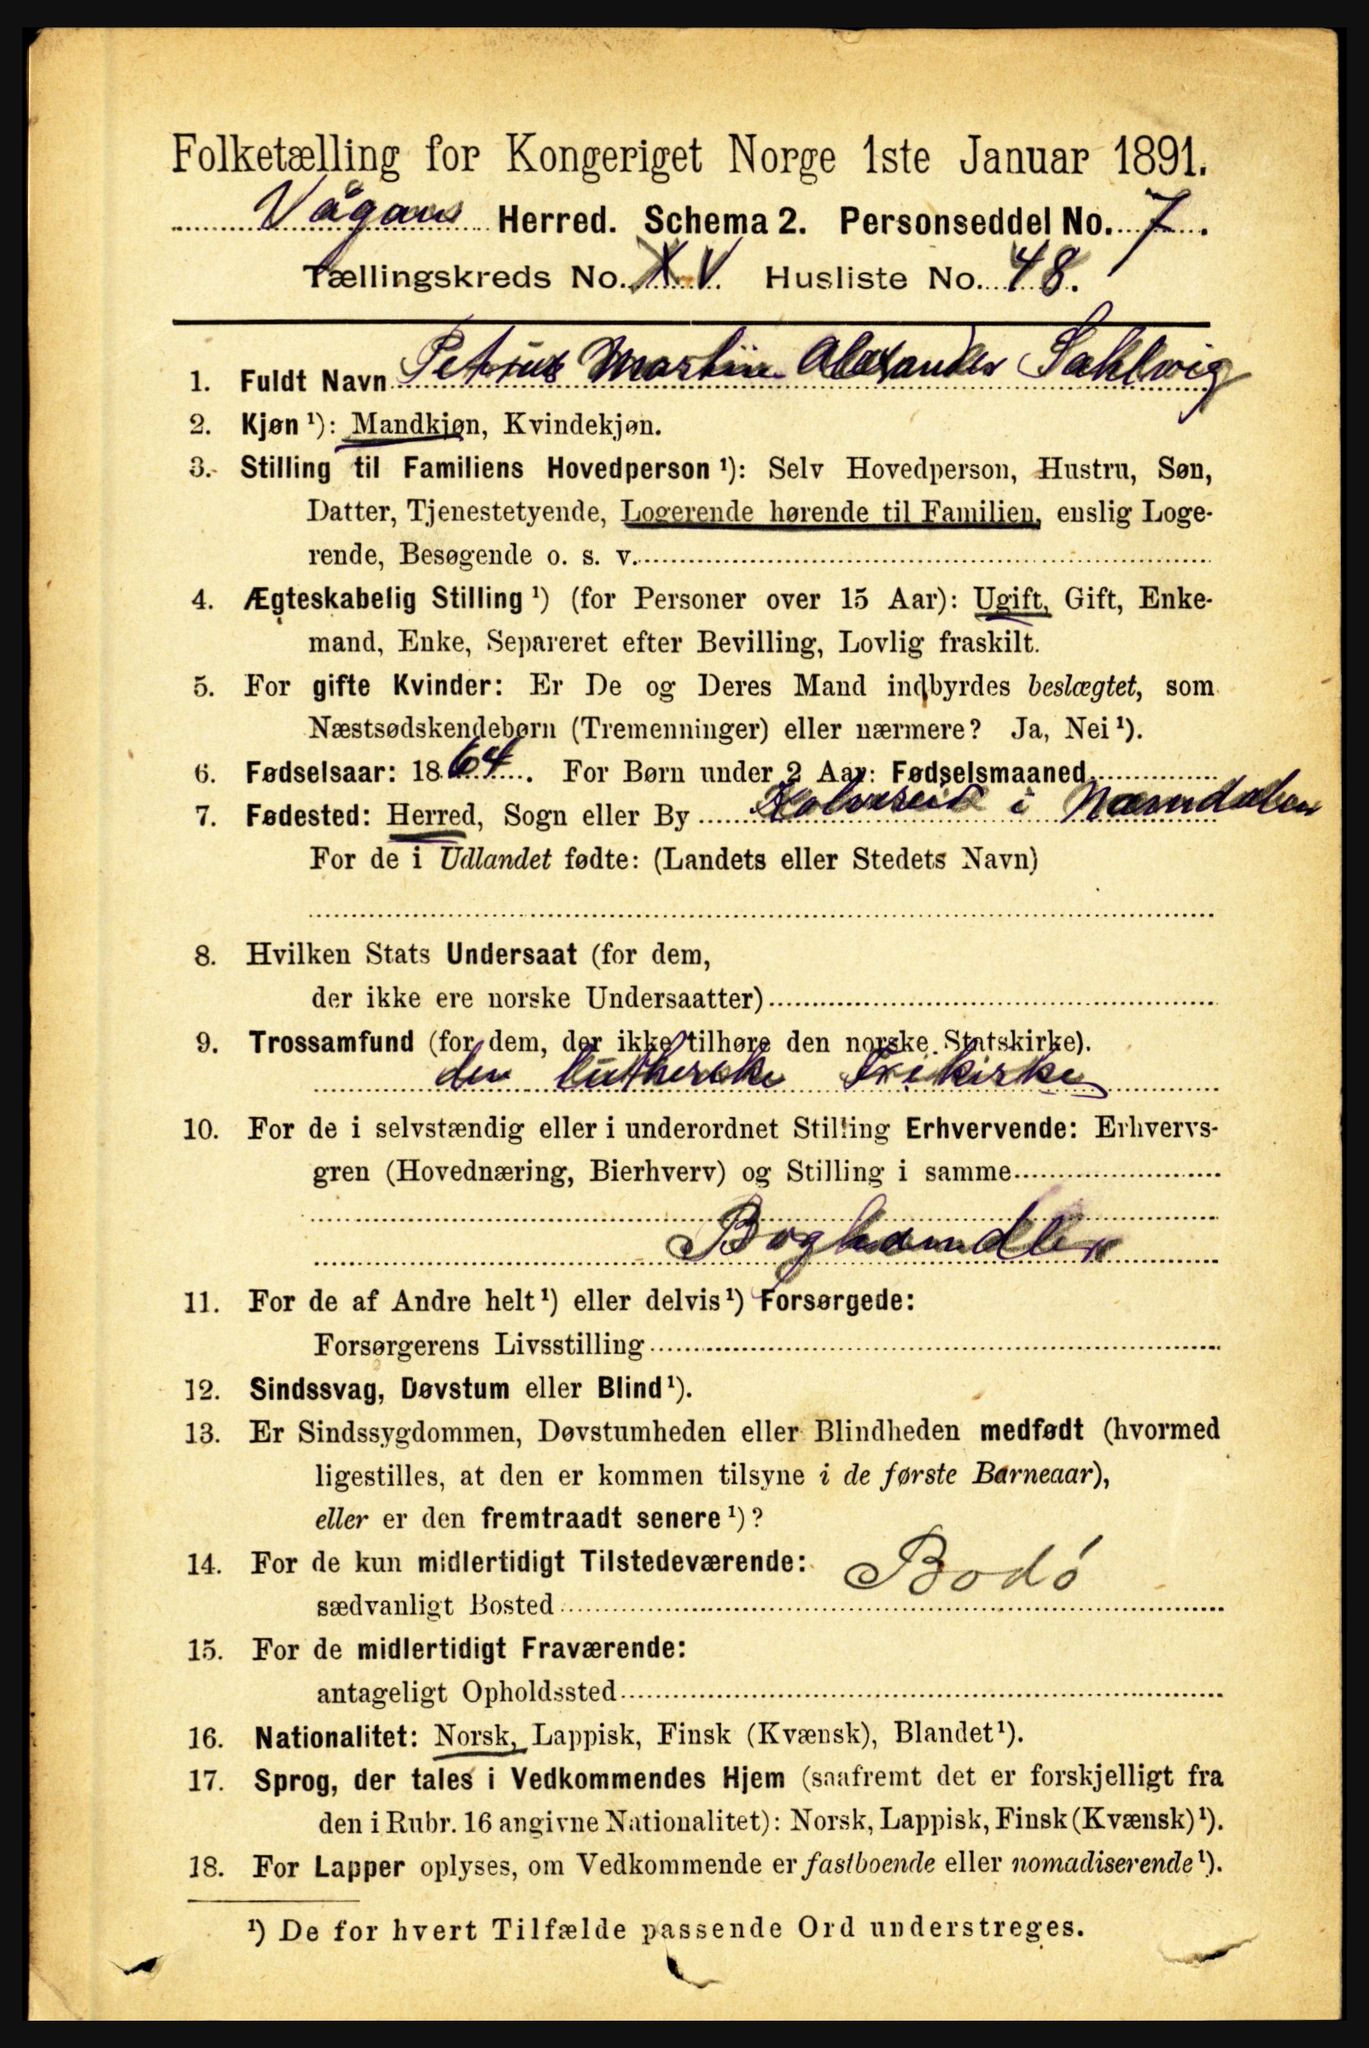 Folketælling for Kongeriget Norge 1ste Januar 1891.
Vågans Herred. Schema 2. Personseddel No. 7.
Tællingskreds No. XV Husliste No. 48.
1. Fuldt Navn Petrus Martin Alexander Sahlvig
2. Kjøn ¹): Mandkjøn, Kvindekjøn.
3. Stilling til Familiens Hovedperson ¹): Selv Hovedperson, Hustru, Søn,
Datter, Tjenestetyende, Logerende hørende til Familien, enslig Loge-
rende, Besøgende o. s. v.
4. Ægteskabelig Stilling ¹) (for Personer over 15 Aar): Ugift, Gift, Enke-
mand, Enke, Separeret efter Bevilling, Lovlig fraskilt.
5. For gifte Kvinder: Er De og Deres Mand indbyrdes beslægtet, som
Næstsødskendebørn (Tremenninger) eller nærmere? Ja, Nei ¹).
6. Fødselsaar: 1864. For Børn under 2 Aar: Fødselsmaaned
7. Fødested: Herred, Sogn eller By Kolvereid i Namdalen
For de i Udlandet fødte: (Landets eller Stedets Navn)
8. Hvilken Stats Undersaat (for dem,
der ikke ere norske Undersaatter)
9. Trossamfund (for dem, der ikke tilhøre den norske Statskirke).
den lutherske Frikirke
10. For de i selvstændig eller i underordnet Stilling Erhvervende: Erhvervs-
gren (Hovednæring, Bierhverv) og Stilling i samme
Boghandler
11. For de af Andre helt ¹) eller delvis ¹) Forsørgede:
Forsørgerens Livsstilling
12. Sindssvag, Døvstum eller Blind ¹).
13. Er Sindssygdommen, Døvstumheden eller Blindheden medfødt (hvormed
ligestilles, at den er kommen tilsyne i de første Barneaar),
eller er den fremtraadt senere ¹)?
14. For de kun midlertidigt Tilstedeværende: Bodó
sædvanligt Bosted
15. For de midlertidigt Fraværende:
antageligt Opholdssted
16. Nationalitet: Norsk, Lappisk, Finsk (Kvænsk), Blandet ¹).
17. Sprog, der tales i Vedkommendes Hjem (saafremt det er forskjelligt fra
den i Rubr. 16 angivne Nationalitet): Norsk, Lappisk, Finsk (Kvænsk) ¹).
18. For Lapper oplyses, om Vedkommende er fastboende eller nomadiserende ¹).
¹) De for hvert Tilfælde passende Ord understreges.